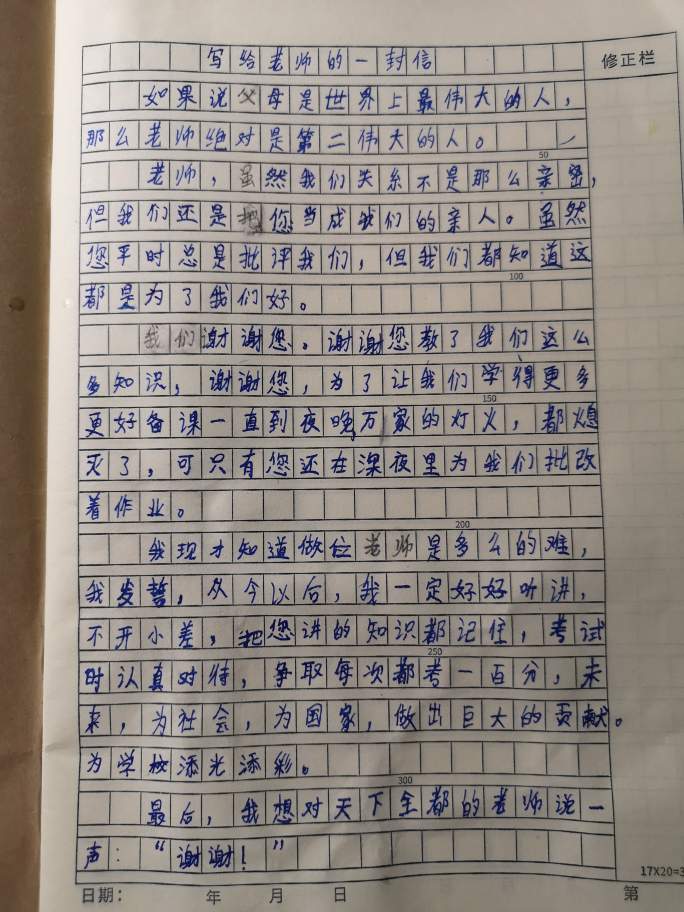 写给老师的一封信
修正栏
如果说父母是世界上最伟大的人，
那么老师绝对是第二伟大的人。
50
老师，虽然我们关系不是那么亲密，
但我们还是把您当成我们的亲人。虽然
您平时总是批评我们，但我们都知道这
100
都是为了我们好。
我们谢谢您。谢谢您教了我们这么
多知识，谢谢您，为了让我们学得更多
150
更好备课一直到夜晚，万家的灯火，都熄
灭了，可只有您还在深夜里为我们批改
着作业。
200
我现才知道做位老师是多么的难，
我发誓，从今以后，我一定好好听讲，
不开小差，把您讲的知识都记住，考试
250
时认真对待，争取每次都考一百分，未
来，为社会，为国家，做出巨大的贡献。
为学校添光添彩。
300
最后，我想对天下全都的老师说一
声：“谢谢！”
17X20=3
日期： 年 月 日 第